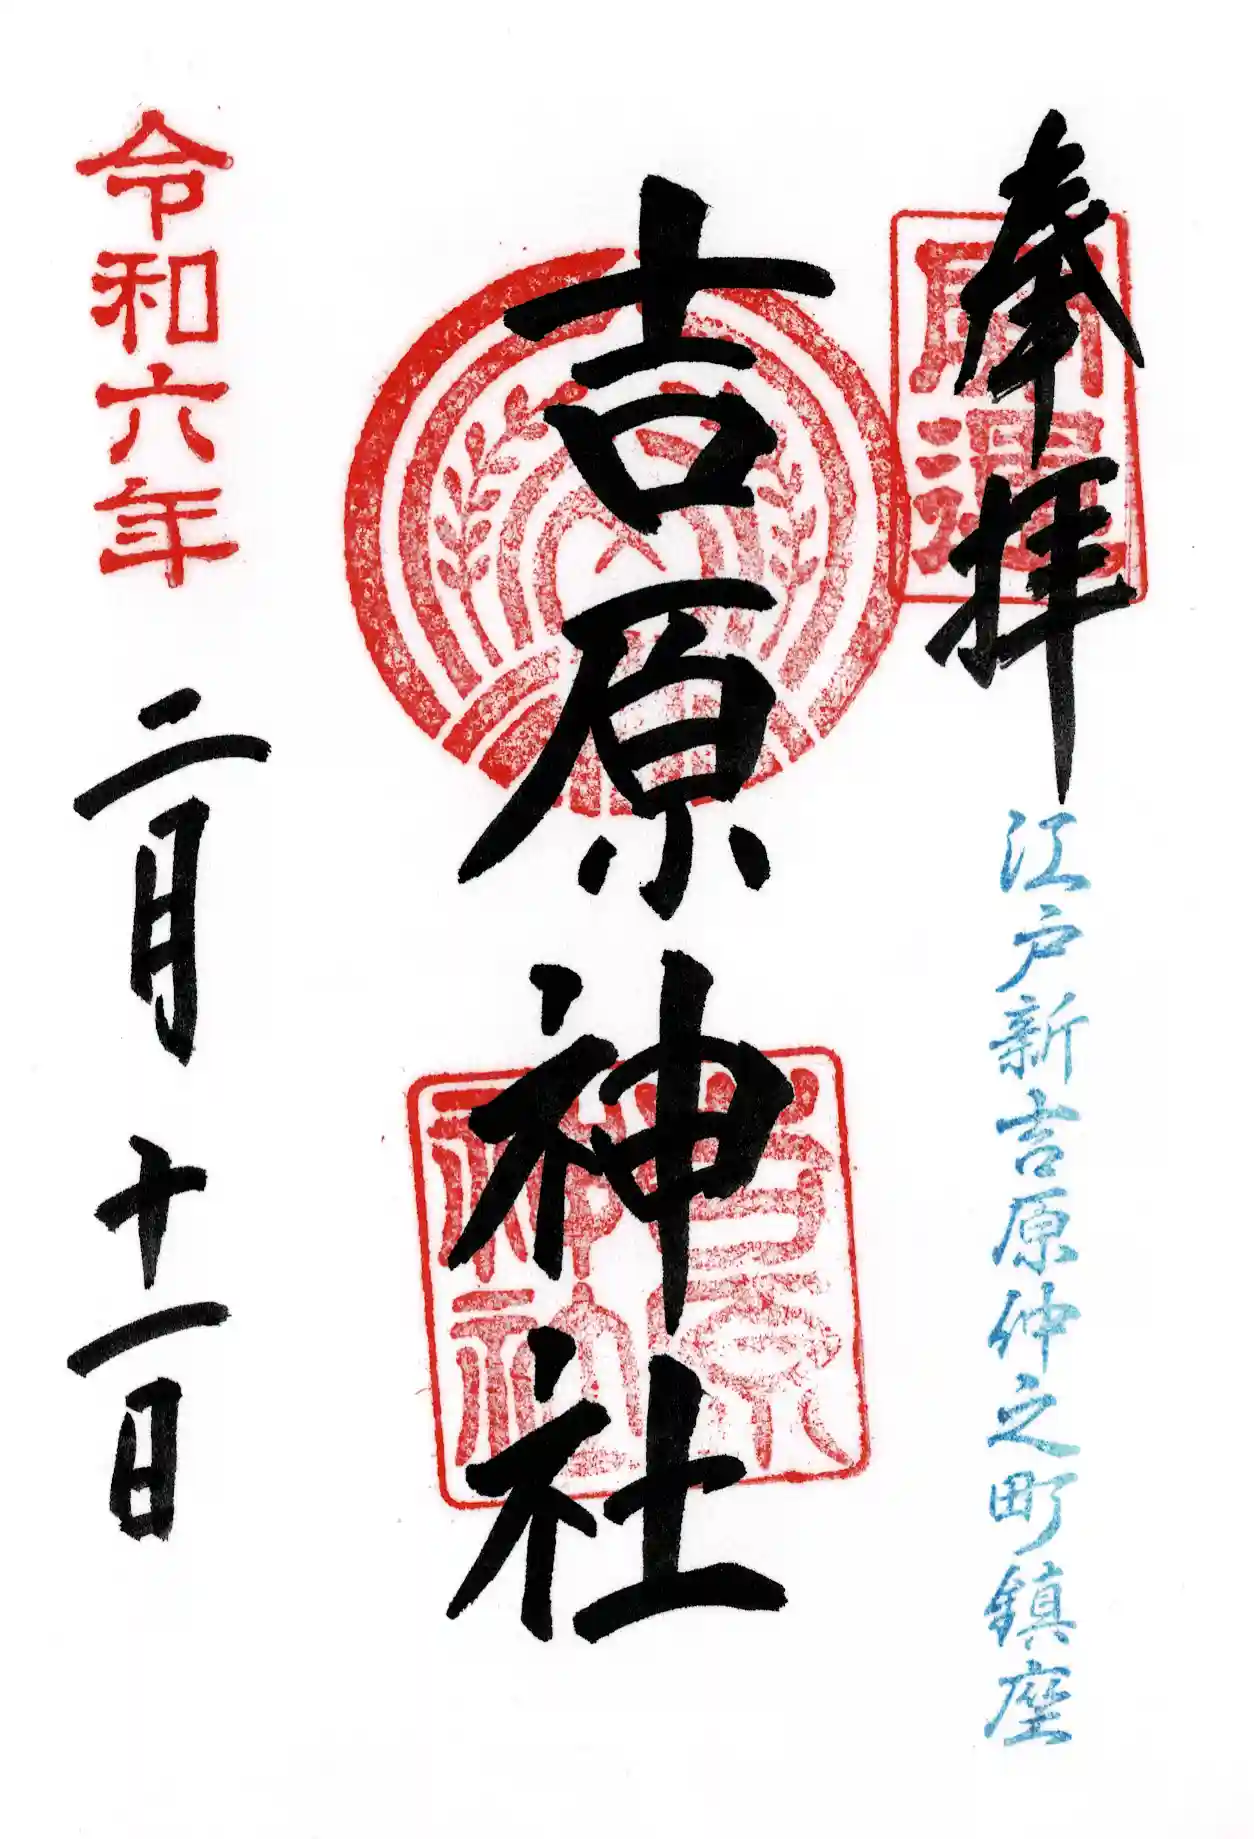 奉拝
開運
江戸新吉原仲之町鎮座
吉原神社
吉原
神社
令和六年
二月十一日